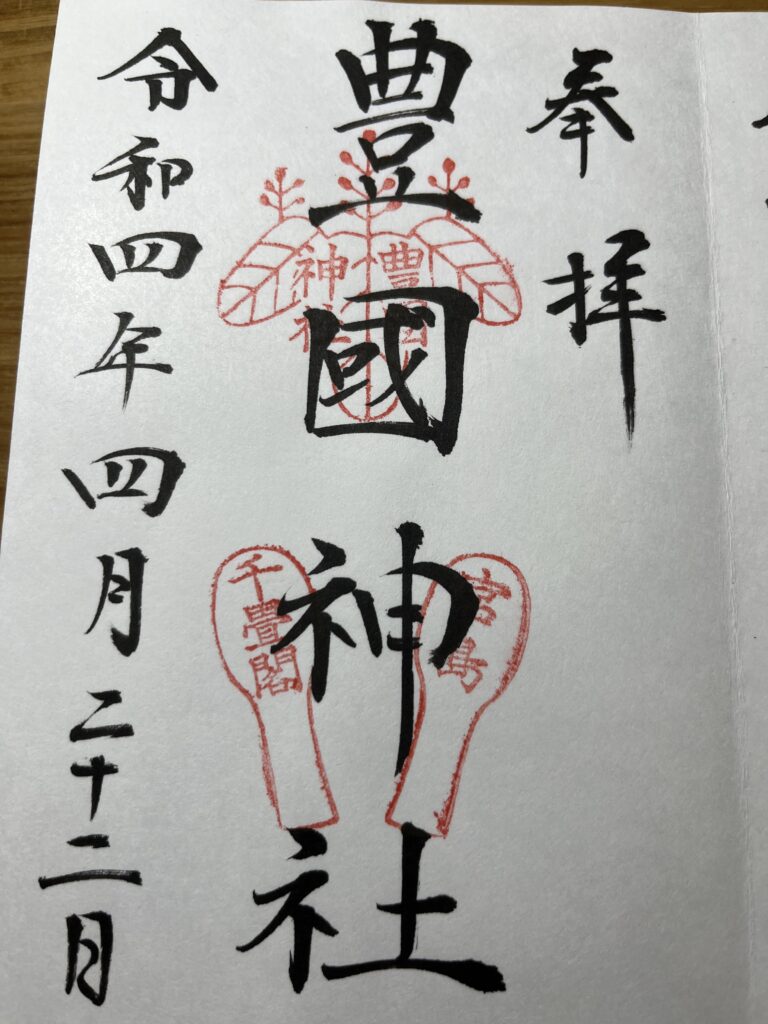 奉拝
豊國神社
豊国
神社
宮島
千畳閣
令和四年四月二十二日